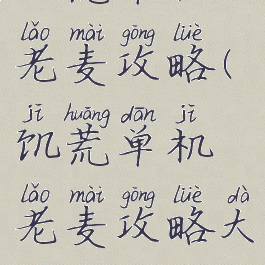 lǎo mài gōng lüè
老麦攻略(
jī huāng dān jī
饥荒单机
lǎo mài gōng lüè dà
老麦攻略大